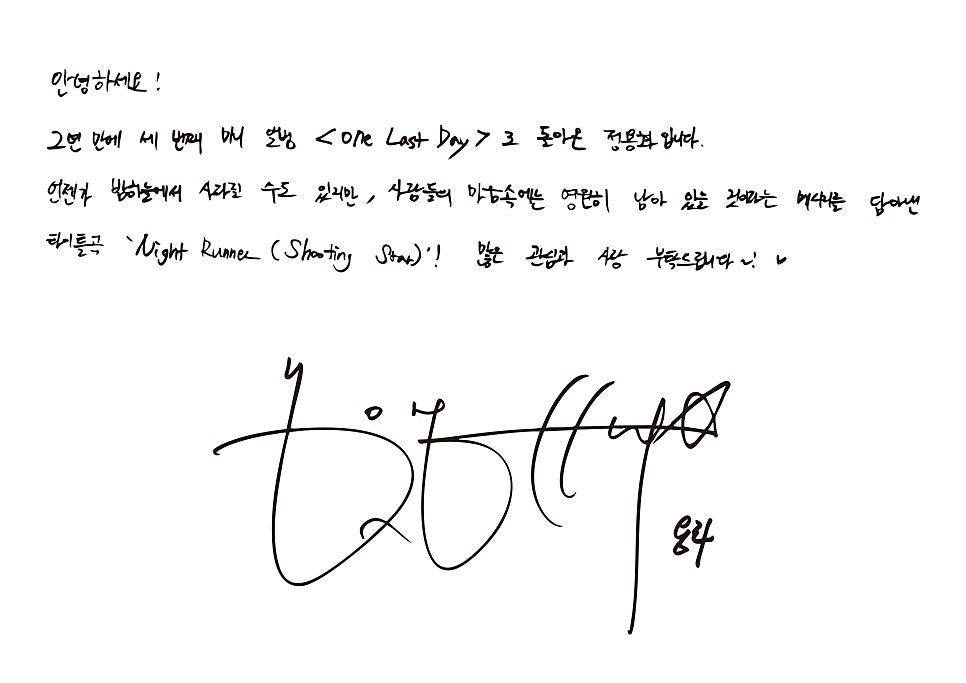 안녕하세요!
2년 만에 세 번째 미니 앨범 <One Last Day>로 돌아온 정용화입니다.
언젠가 밤하늘에서 사라질 수도 있지만, 사람들의 마음속에는 영원히 남아 있을 것이라는 메시지를 담아낸
타이틀곡 'Night Runner (Shooting Star)'! 많은 관심과 사랑 부탁드립니다~! ♥
용화